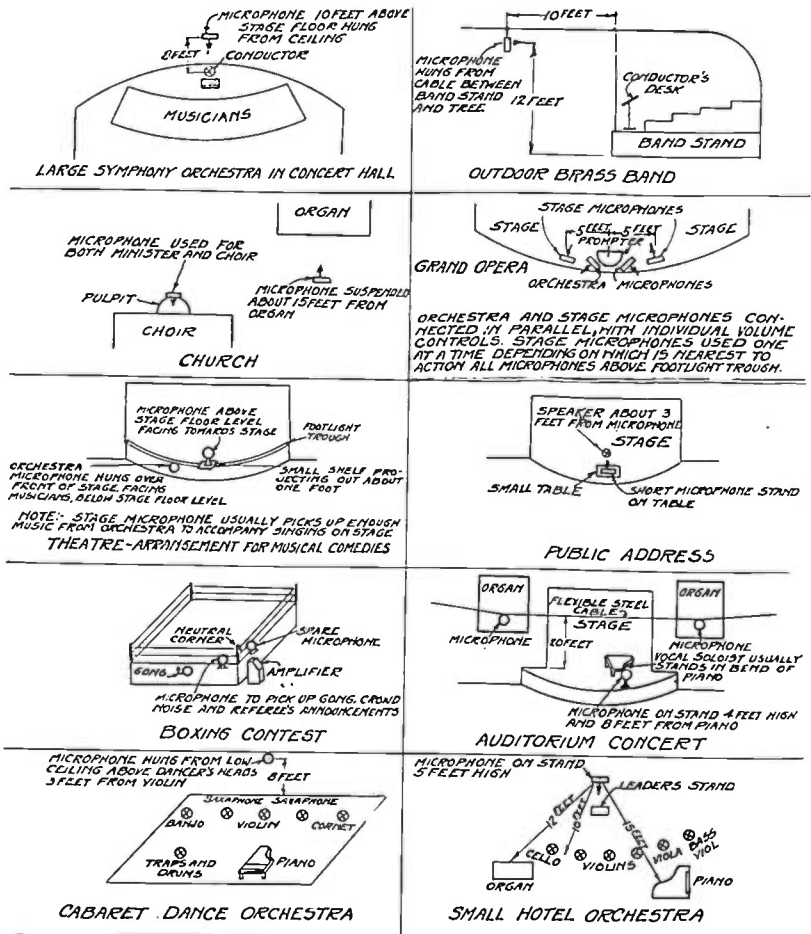 MICROPHONE 10 FEET ABOVE
STAGE FLOOR HUNG
FROM CEILING
8 FEET
CONDUCTOR
MUSICIANS
LARGE SYMPHONY ORCHESTRA IN CONCERT HALL
10 FEET
MICROPHONE
HUNG FROM
CABLE BETWEEN
BAND STAND
AND TREE.
12 FEET
CONDUCTOR'S
DESK
BAND STAND
OUTDOOR BRASS BAND
ORGAN
MICROPHONE USED FOR
BOTH MINISTER AND CHOIR
PULPIT
MICROPHONE SUSPENDED
ABOUT 15 FEET FROM
ORGAN
CHOIR
CHURCH
STAGE MICROPHONES
STAGE
5 FEET
5 FEET
STAGE
PROMPTER
GRAND OPERA
ORCHESTRA MICROPHONES
ORCHESTRA AND STAGE MICROPHONES CON-
NECTED IN PARALLEL, WITH INDIVIDUAL VOLUME
CONTROLS. STAGE MICROPHONES USED ONE
AT A TIME DEPENDING ON WHICH IS NEAREST TO
ACTION ALL MICROPHONES ABOVE FOOTLIGHT TROUGH.
MICROPHONE ABOVE
STAGE FLOOR LEVEL
FACING TOWARDS STAGE
FOOTLIGHT
TROUGH
ORCHESTRA
MICROPHONE HUNG OVER
FRONT OF STAGE, FACING
MUSICIANS, BELOW STAGE FLOOR LEVEL
SMALL SHELF PRO-
JECTING OUT ABOUT
ONE FOOT
NOTE:- STAGE MICROPHONE USUALLY PICKS UP ENOUGH
MUSIC FROM ORCHESTRA TO ACCOMPANY SINGING ON STAGE
THEATRE-ARRANGEMENT FOR MUSICAL COMEDIES
SPEAKER ABOUT 3
FEET FROM MICROPHONE
STAGE
SMALL TABLE
SHORT MICROPHONE STAND
ON TABLE
PUBLIC ADDRESS
NEUTRAL
CORNER
SPARE
MICROPHONE
GONG
AMPLIFIER
MICROPHONE TO PICK UP GONG, CROWD
NOISE AND REFEREE'S ANNOUNCEMENTS
BOXING CONTEST
ORGAN
FLEXIBLE STEEL
CABLE
STAGE
ORGAN
MICROPHONE
20 FEET
MICROPHONE
VOCAL SOLOIST USUALLY
STANDS IN BEND OF
PIANO
MICROPHONE ON STAND 4 FEET HIGH
AND 8 FEET FROM PIANO
AUDITORIUM CONCERT
MICROPHONE HUNG FROM LOW
CEILING ABOVE DANCER'S HEADS
FEET FROM VIOLIN
8 FEET
SAXAPHONE SAXAPHONE
BANJO
VIOLIN
CORNET
TRAPS AND
DRUMS
PIANO
CABARET DANCE ORCHESTRA
MICROPHONE ON STAND
5 FEET HIGH
LEADERS STAND
12 FEET
10 FEET
15 FEET
CELLO
VIOLINS
VIOLA
BASS
VIOL
ORGAN
PIANO
SMALL HOTEL ORCHESTRA